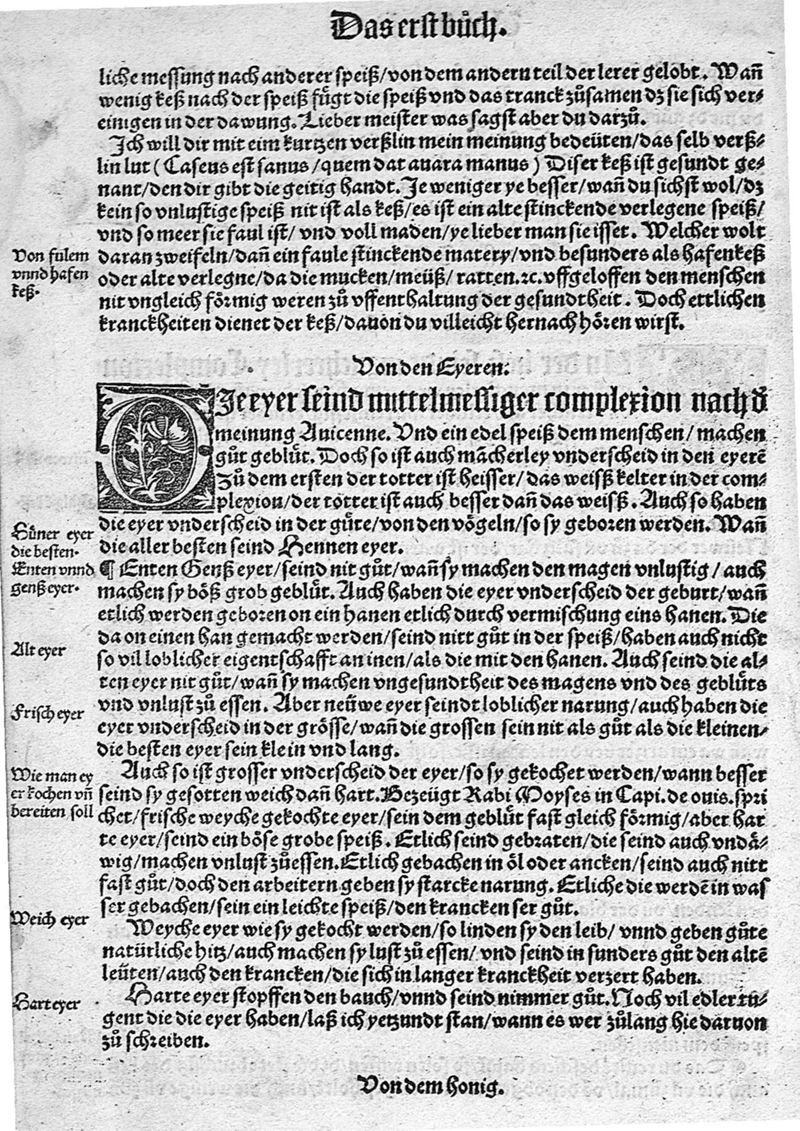 Das erst bůch.
liche messung nach anderer speiß/von dem andern teil der lerer gelobt. Wañ
wenig keß nach der speiß fůgt die speiß vnd das tranck zůsamen dz sie sich ver⸗
einigen in der dawung. Lieber meister was sagst aber du darzů.
Ich will dir mit eim kurtzen verßlin mein meinung bedeüten/das selb verß⸗
lin lut (Caseus est sanus/quem dat auara manus) Diser keß ist gesundt ge⸗
nant/den dir gibt die geitig handt. Je weniger ye besser/wañ du sichst wol/dz
kein so vnlustige speiß nit ist als keß/es ist ein alte stinckende verlegene speiß/
vnd so meer sie faul ist/vnd voll maden/ye lieber man sie isset. Welcher wolt
Von fulem
daran zweifeln/dañ ein faule stinckende matery/vnd besunders als hafenkeß
vnnd hafen
oder alte verlegne/da die mucken/meüß/ratten.⁊c.vffgeloffen den menschen
keß.
nit vngleich förmig weren zů vffenthaltung der gesundtheit. Doch ettlichen
kranckheiten dienet der keß/dauon du villeicht hernach hören wirst.
Von den Eyeren.
DJe eyer seind mittelmessiger complexion nach d̄
meinung Auicenne. Vnd ein edel speiß dem menschen/machen
gůt geblůt. Doch so ist auch mācherley vnderscheid in den eyerē
Zů dem ersten der totter ist heisser/das weiß kelter in der com⸗
plexion/der totter ist auch besser dañ das weiß. Auch so haben
die eyer vnderscheid in der gůte/von den vögeln/so sy geboren werden. Wañ
Hůner eyer
die besten.
die aller besten seind Hennen eyer.
Enten vnnd
¶ Enten Genß eyer/seind nit gůt/wañ sy machen den magen vnlustig/auch
genß eyer.
machen sy böß grob geblůt. Auch haben die eyer vnderscheid der geburt/wañ
etlich werden geboren on ein hanen etlich durch vermischung eins hanen. Die
da on einen han gemacht werden/seind nitt gůt in der speiß/haben auch nicht
Alt eyer
so vil loblicher eigentschafft an inen/als die mit den hanen. Auch seind die al⸗
ten eyer nit gůt/wañ sy machen vngesundtheit des magens vnd des geblůts
vnd vnlust zů essen. Aber neüwe eyer seindt loblicher narung/auch haben die
Frisch eyer
eyer vnderscheid in der grösse/wañ die grossen sein nit als gůt als die kleinen⸗
die besten eyer sein klein vnd lang.
Wie man ey
Auch so ist grosser vnderscheid der eyer/so sy gekochet werden/wann besser
er kochen vñ
seind sy gesotten weich dañ hart. Bezeügt Rabi Moyses in Capi. de ouis. spri
bereiten soll
chet/frische weyche gekochte eyer/sein dem geblůt fast gleich förmig/aber har
te eyer/seind ein böse grobe speiß. Etlich seind gebraten/die seind auch vndå⸗
wig/machen vnlust zůessen. Etlich gebachen in öl oder ancken/seind auch nitt
fast gůt/doch den arbeitern geben sy starcke narung. Etliche die werdē in was
ser gebachen/sein ein leichte speiß/den krancken ser gůt.
Weich eyer
Weyche eyer wie sy gekocht werden/so linden sy den leib/vnnd geben gůte
natürliche hitz/auch machen sy lust zů essen/vnd seind in sunders gůt den altē
leüten/auch den krancken/die sich in langer kranckheit verzert haben.
Hart eyer
Harte eyer stopffen den bauch/vnnd seind nimmer gůt. Noch vil edler tu⸗
gent die die eyer haben/laß ich yetzundt stan/wann es wer zůlang hie daruon
zů schreiben.
Von dem honig.